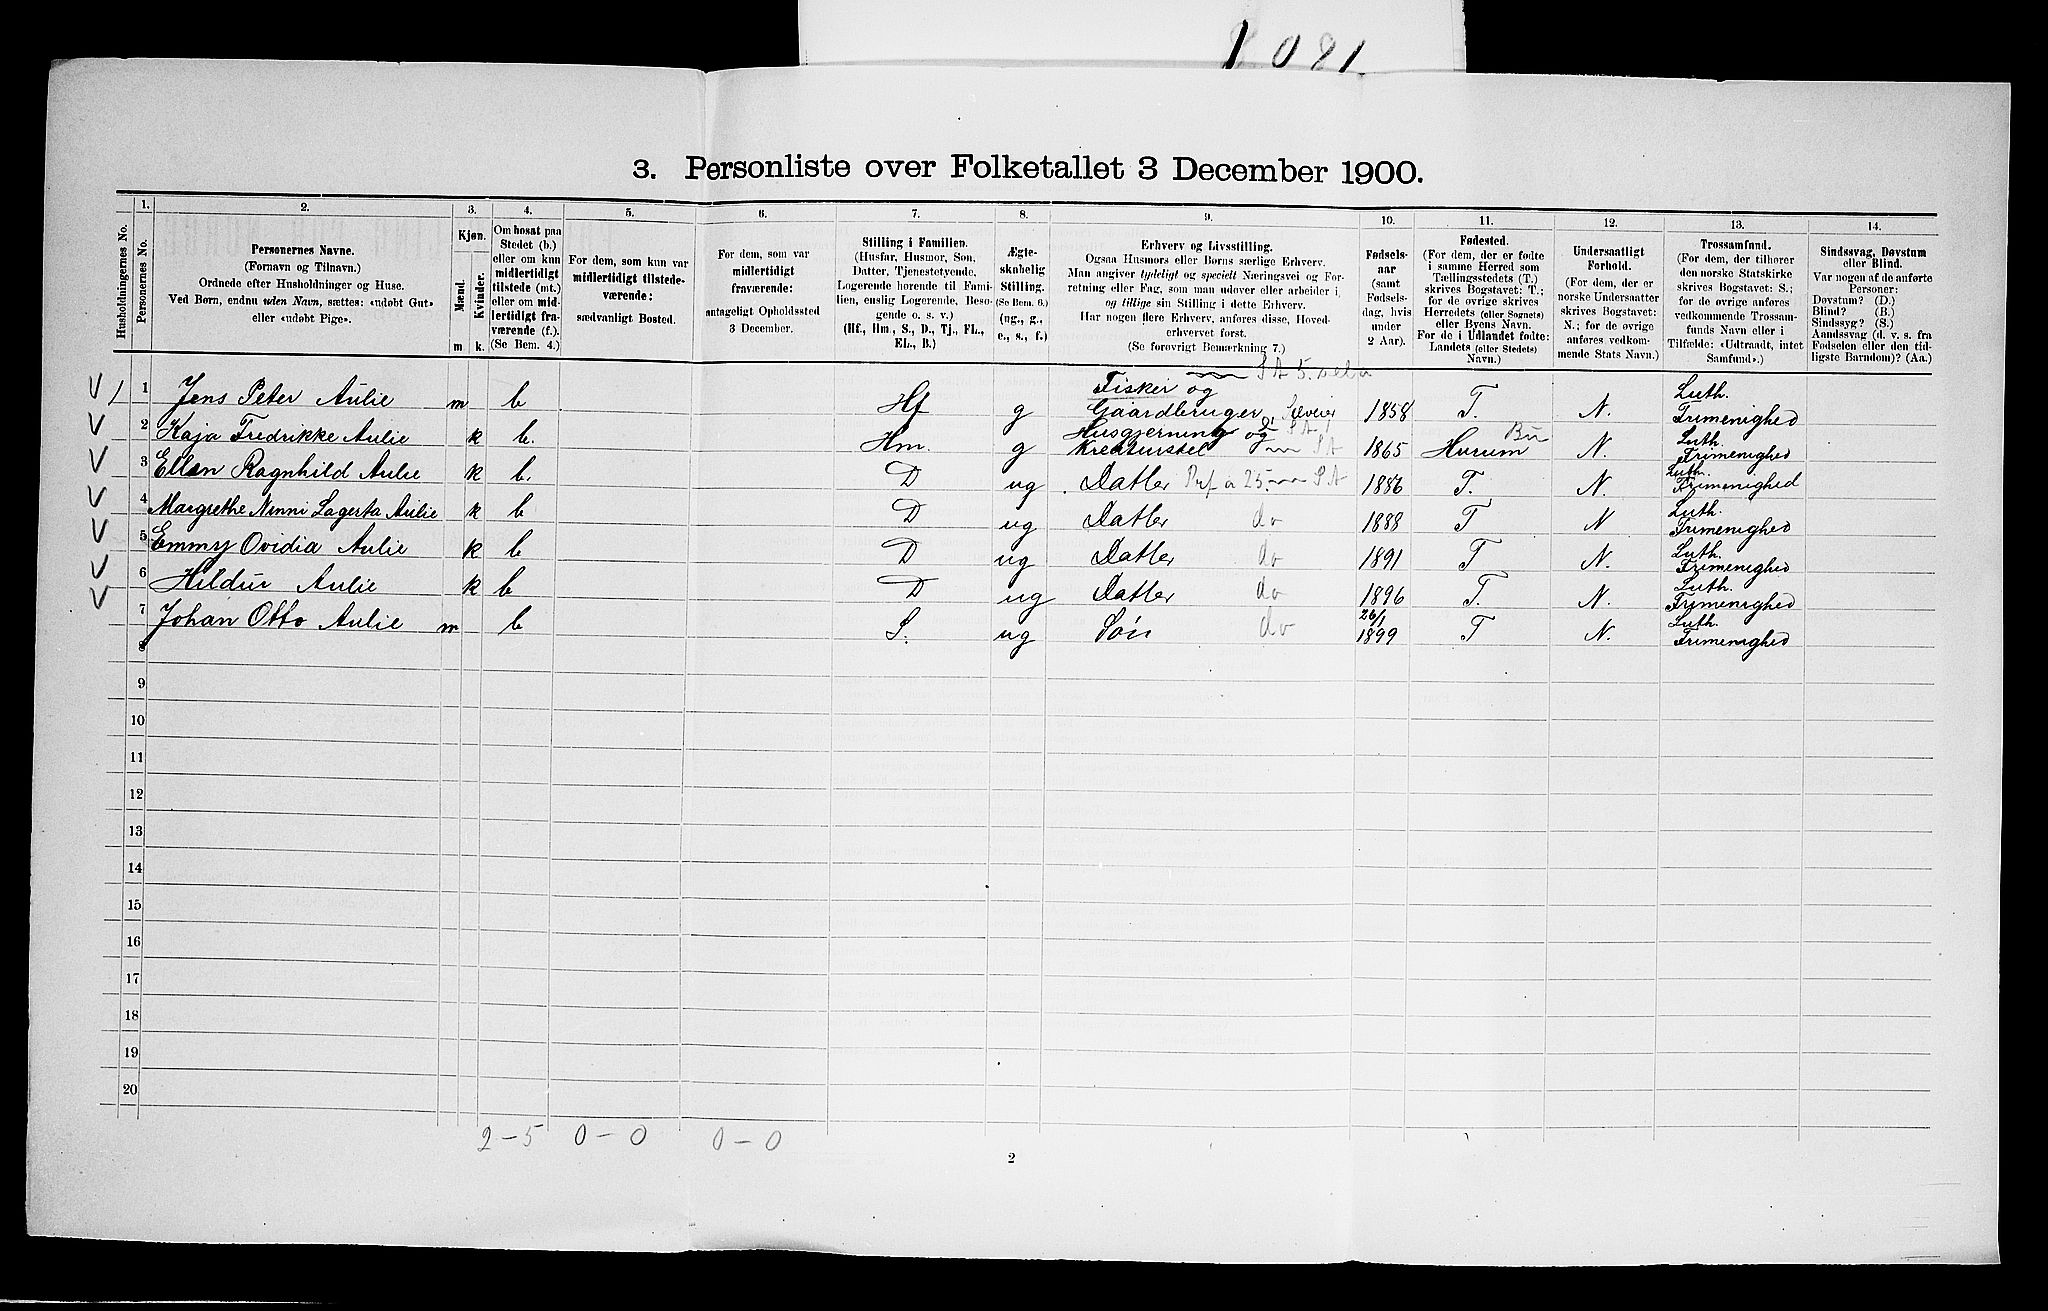 1081.
3. Personliste over Folketallet 3 December 1900.
Husholdningernes No.
1.
Personernes No.
2.
Personernes Navne.
(Fornavn og Tilnavn.)
Ordnede efter Husholdninger og Huse.
Ved Børn, endnu uden Navn, sættes: «udøbt Gut»
eller «udøbt Pige».
3.
Kjøn.
Mænd.
Kvinder.
m k.
4.
Om bosat paa
Stedet (b.)
eller om kun
midlertidigt
tilstede (mt.)
eller om mid-
lertidigt fra-
værende (f.).
(Se Bem. 4.)
5.
For dem, som kun var
midlertidigt tilstede-
værende:
sædvanligt Bosted.
6.
For dem, som var
midlertidigt
fraværende:
antageligt Opholdssted
3 December.
7.
Stilling i Familien.
(Husfar, Husmor, Søn,
Datter, Tjenestetyende,
Logerende hørende til Fami-
lien, enslig Logerende, Besø-
gende o. s. v.)
(Hf., Hm., S., D., Tj., FL.,
EL., B.)
8.
Ægte-
skabelig
Stilling.
(Se Bem. 6.)
(ug., g.,
e., s., f.)
9.
Erhverv og Livsstilling.
Ogsaa Husmors eller Børns særlige Erhverv.
Man angiver tydeligt og specielt Næringsvei og For-
retning eller Fag, som man udøver eller arbeider i,
og tillige sin Stilling i dette Erhverv.
Har nogen flere Erhverv, anføres disse, Hoved-
erhvervet først.
(Se forøvrigt Bemærkning 7.)
10.
Fødsels-
aar
(samt
Fødsels-
dag, hvis
under
2 Aar).
11.
Fødested.
(For dem, der er fødte
i samme Herred som
Tællingsstedets (T.)
skrives Bogstavet: T.;
for de øvrige skrives
Herredets (eller Sognets)
eller Byens Navn.
For de i Udlandet fødte:
Landets (eller Stedets)
Navn.)
12.
Undersaatligt
Forhold.
(For dem, der er
norske Undersaatter
skrives Bogstavet:
N.; for de øvrige
anføres vedkom-
mende Stats Navn.)
13.
Trossamfund.
(For dem, der tilhører
den norske Statskirke
skrives Bogstavet: S.;
for de øvrige anføres
vedkommende Trossam-
funds Navn eller i
Tilfælde: «Udtraadt, intet
Samfund».)
14.
Sindssvag, Døvstum
eller Blind.
Var nogen af de anførte
Personer:
Døvstum? (D.)
Blind? (B.)
Sindssyg? (S.)
Aandssvag (d. v. s. fra
Fødselen eller den tid-
ligste Barndom)? (Aa.)
1 Jens Peter Aulie m b Hf g Fisker og Gaardbruger Selveier 1858 T. N. Luth. Frimenighed
2 Kaja Fredrikke Aulie k b. Hm. g Husgjerning og Kreaturstel 1865 Hurum Bu N. Luth. Frimenighed
3 Ellen Ragnhild Aulie k b. D ug Datler 1886 T. N. Luth. Frimenighed
4 Margrethe Ninni Lagerta Aulie k b D ug Datler do 1888 T N Luth. Frimenighed
5 Emmy Ovidia Aulie k b D ug Datler do 1891 T N. Luth. Frimenighed
6 Hildur Aulie k b D ug Datler do 1896 T. N. Luth. Frimenighed
7 Johan Otto Aulie m b S. ug Søn do 26/1 1899 T N. Luth. Frimenighed
8
9
10
11
12
13
14
15
16
17
18
19
20
2-5 0-0 0-0
2